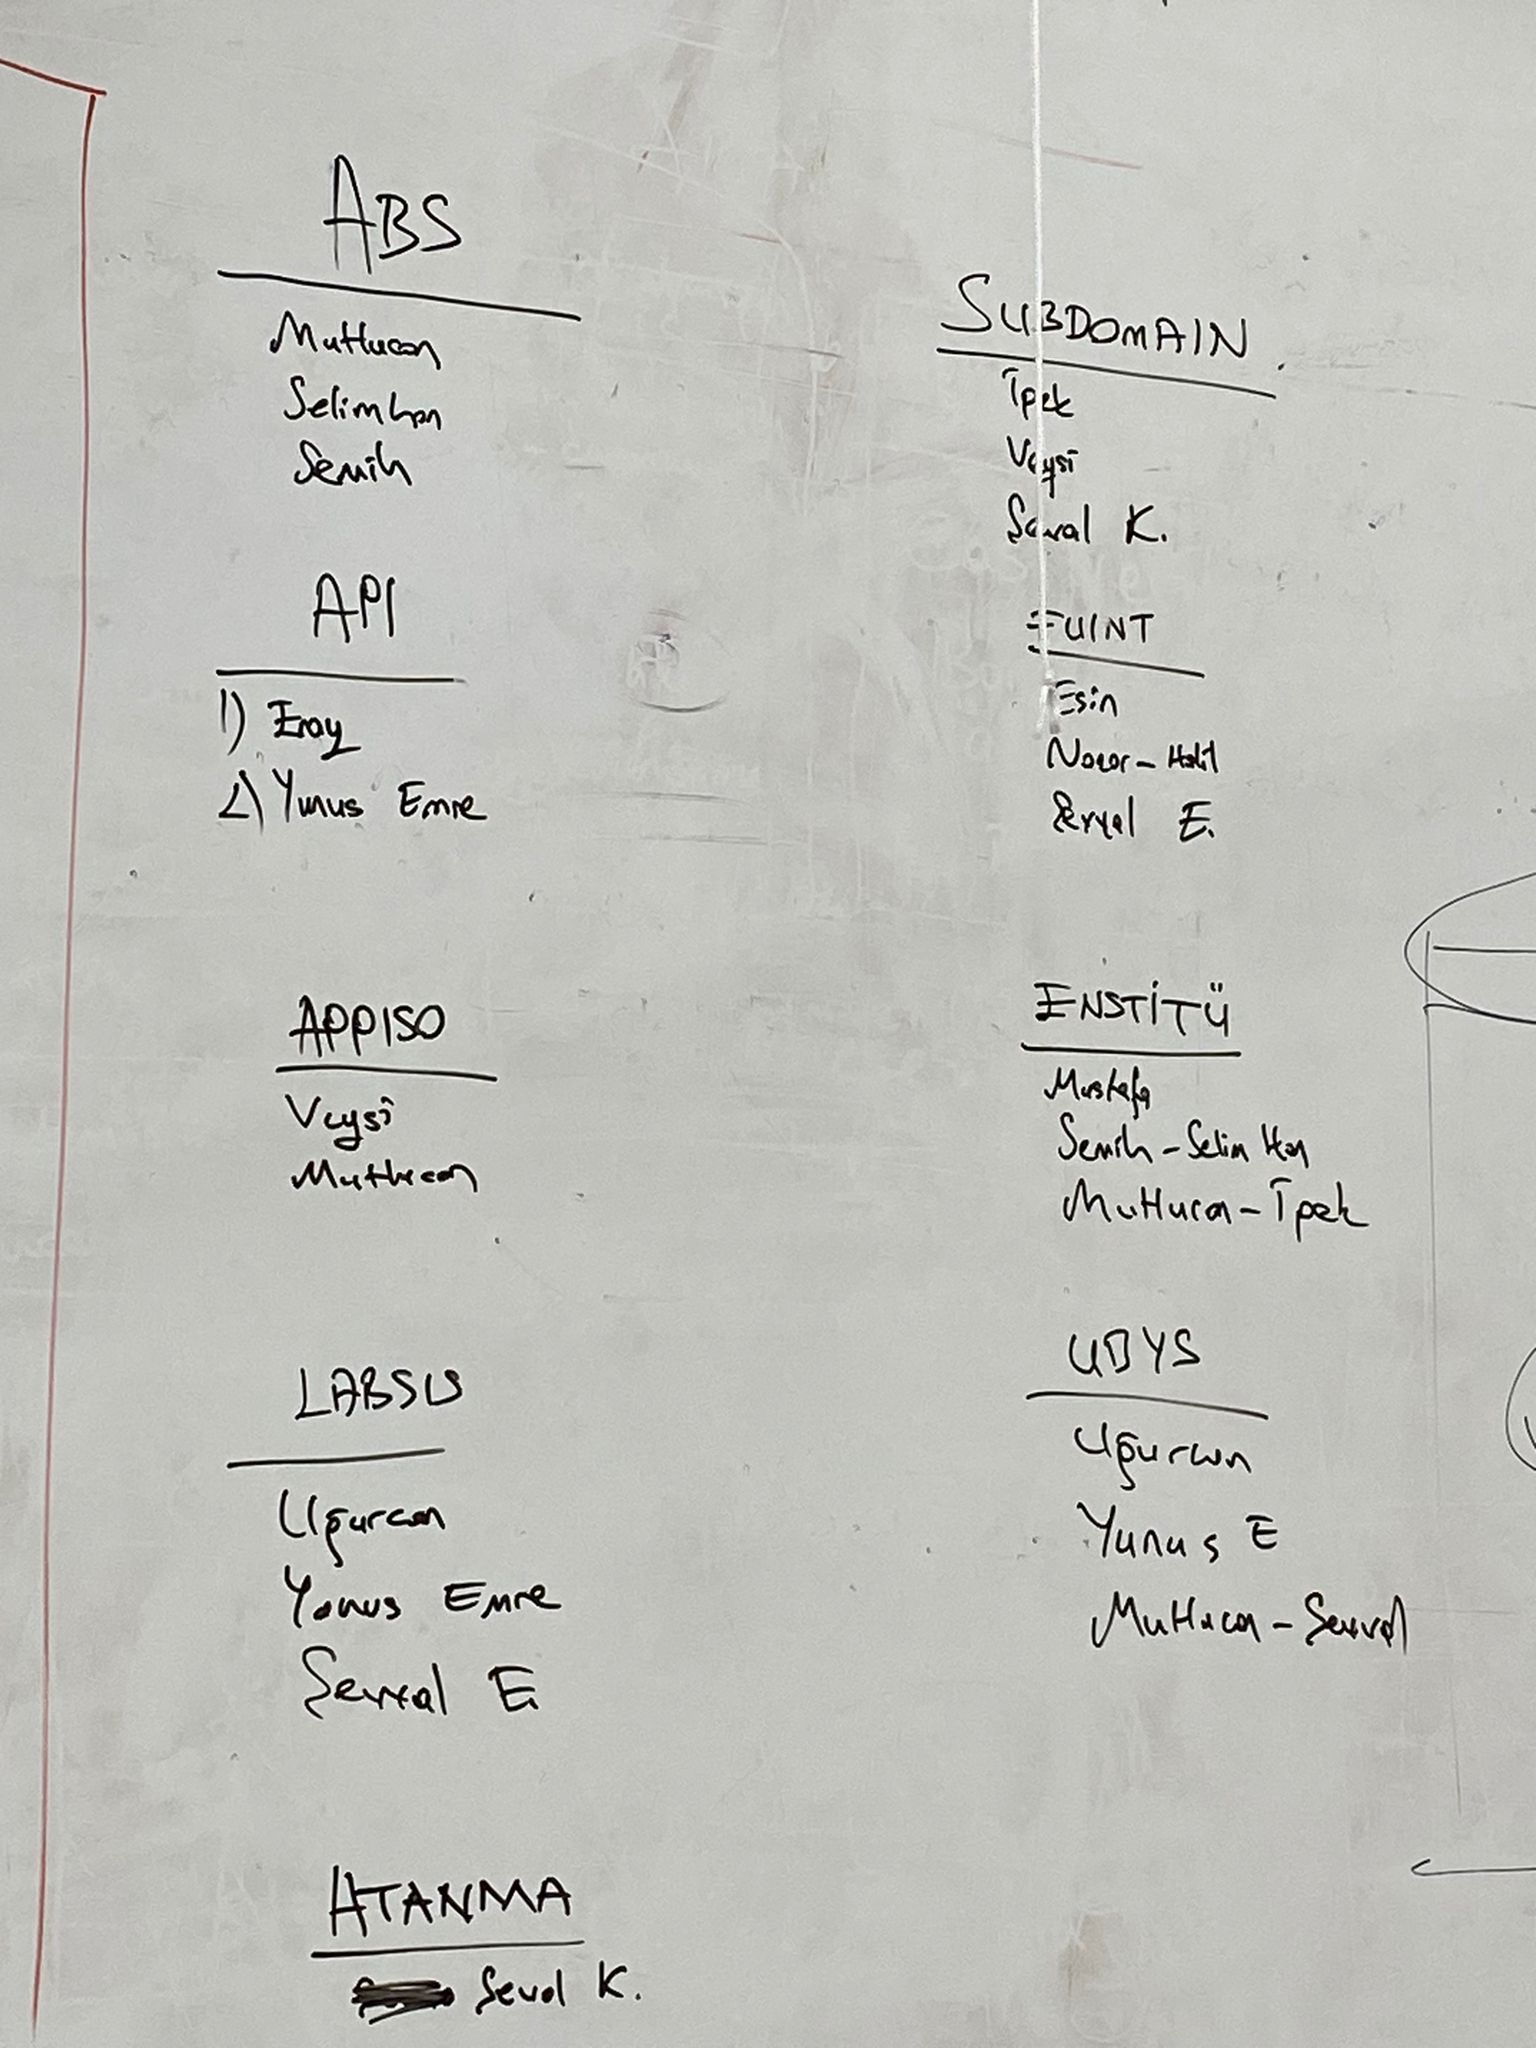 ABS
Mutlucan
Selimhan
Semih
API
1) Eray
2) Yunus Emre
APPISO
Veysi
Mutlucan
LABSUS
Uğurcan
Yunus Emre
Şevval E.
ATANMA
Seval K.
SUBDOMAIN
İpek
Veysi
K.
Esin
Halil
E.
ENSTİTÜ
Mustafa
Semih - Selim Han
Mutlucan - İpek
UBYS
Uğurcan
Yunus E
Mutlucan - Şevval